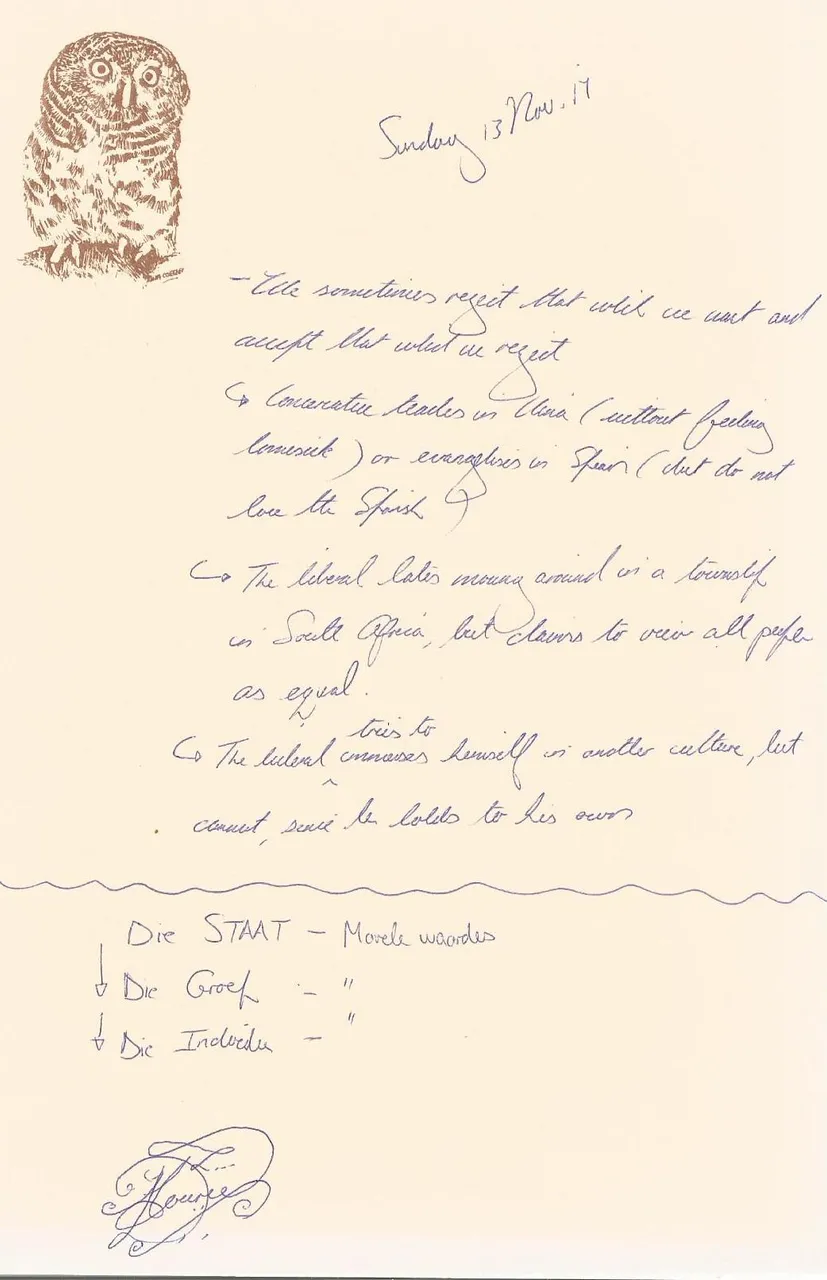 Sunday 13 Nov. 17
- We sometimes reject that which we want and
accept that which we reject
↳ Conservative teaches in China (without feeling
homesick) or evangelises in Spain (but do not
love the Spanish)
↳ The liberal hates moving around in a township
in South Africa, but claims to view all people
as equal.
tries to
↳ The liberal ^ immerses himself in another culture, but
cannot, since he holds to his own
Die STAAT - Morele waardes
↓ Die Groep - "
↓ Die Individu - "